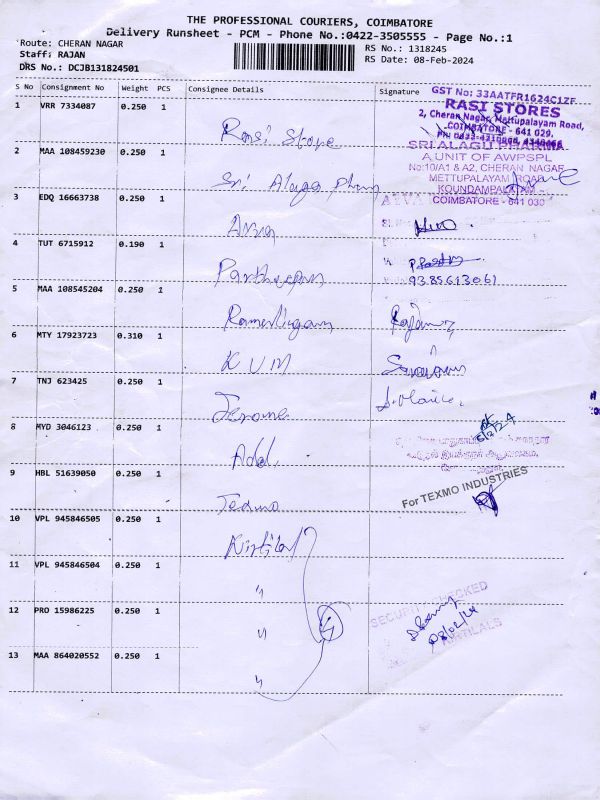 THE PROFESSIONAL COURIERS, COIMBATORE
Delivery Runsheet - PCM - Phone No.:0422-3505555 - Page No.:1
Route: CHERAN NAGAR
RS No.: 1318245
Staff: RAJAN
RS Date: 08-Feb-2024
DRS No.: DCJB131824501
S No Consignment No Weight PCS Consignee Details Signature
GST No: 33AATFR1624C1ZF
RASI STORES
2, Cheran Nagar, Mettupalayam Road,
COIMBATORE - 641 029.
1 VRR 7334087 0.250 1 Rasi Store
SRI ALAGU PHARMA
A UNIT OF AWPSPL
No:10/A1 & A2, CHERAN NAGAR
METTUPALAYAM ROAD
KOUNDAMPALAYAM
COIMBATORE - 641 030
2 MAA 108459230 0.250 1 Sri Alagu Pharm
3 EDQ 16663738 0.250 1
4 TUT 6715912 0.190 1 Parthiepan
9385613061
5 MAA 108545204 0.250 1 Ramerlingam
6 MTY 17923723 0.310 1 KUM
7 TNJ 623425 0.250 1 Jerome
8 MYD 3046123 0.250 1
8/2/24
9 HBL 51639050 0.250 1 Texmo
For TEXMO INDUSTRIES
10 VPL 945846505 0.250 1 Kirtilal
11 VPL 945846504 0.250 1 "
12 PRO 15986225 0.250 1 "
4
SECURITY CHECKED
08/02/24
KIRTILALS
13 MAA 864020552 0.250 1 "